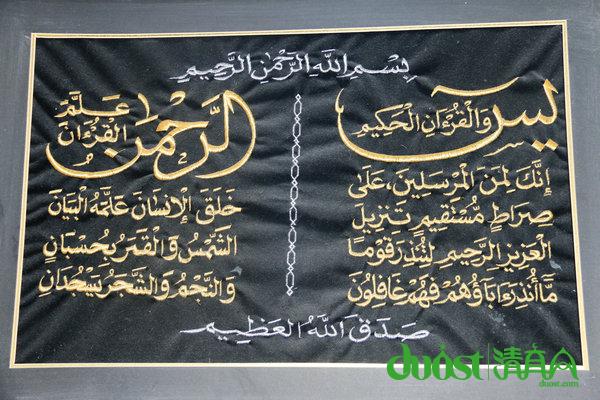 بِسْمِ اللَّهِ الرَّحْمَنِ الرَّحِيمِ
يس وَالْقُرْءَانِ الْحَكِيمِ
إِنَّكَ لَمِنَ الْمُرْسَلِينَ، عَلَى
صِرَاطٍ مُسْتَقِيمٍ تَنْزِيلَ
الْعَزِيزِ الرَّحِيمِ لِتُنْذِرَ قَوْمًا
مَّا أُنْذِرَ ءَابَاؤُهُمْ فَهُمْ غَافِلُونَ
الرَّحْمَنُ عَلَّمَ الْقُرْءَانَ
خَلَقَ الْإِنْسَانَ عَلَّمَهُ الْبَيَانَ
الشَّمْسُ وَالْقَمَرُ بِحُسْبَانٍ
وَالنَّجْمُ وَالشَّجَرُ يَسْجُدَانِ
صَدَقَ اللَّهُ الْعَظِيمُ
duost 清真网
duost.com